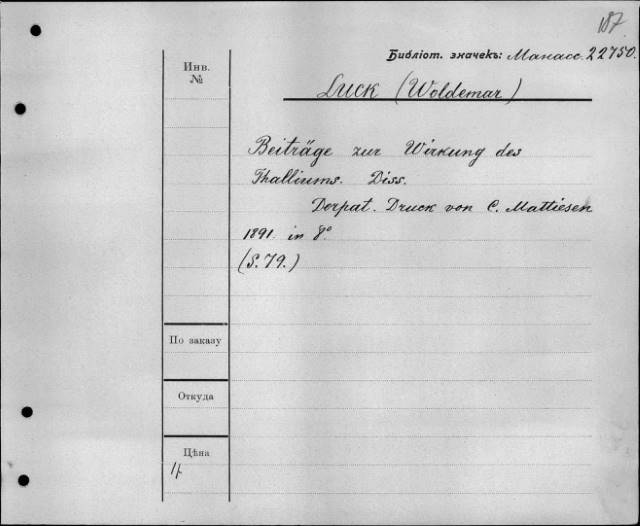 187.
Библіот. значекъ: Манасс. 22750.
Инв.
№
Luck (Woldemar)
Beiträge zur Wirkung des
Thalliums. Diss.
Dorpat. Druck von C. Mattiesen
1891. in 8°
(S. 79.)
По заказу
Откуда
Цѣна